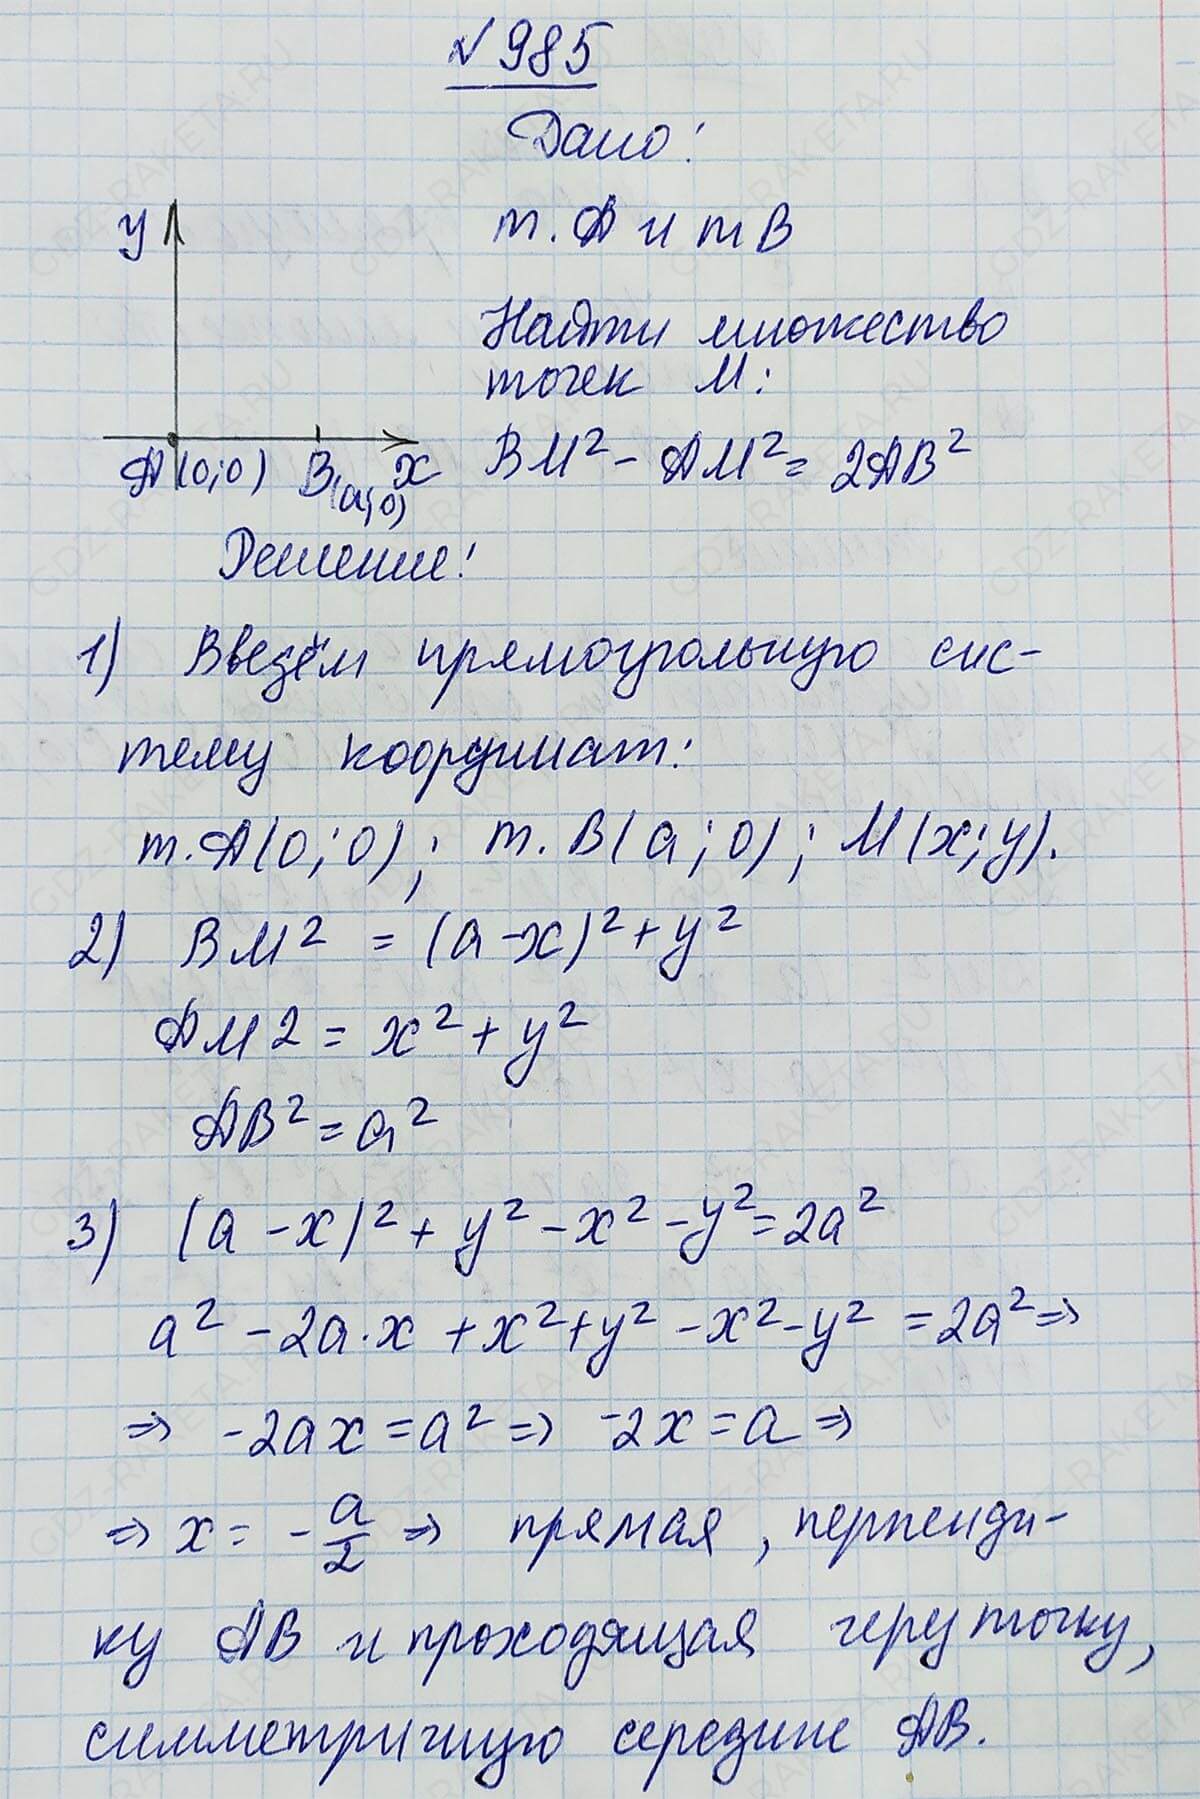 №985
Дано:
т. А и т В
Найти множество
точек М:
BM² - AM² = 2AB²
y
A(0;0) B(a;0) x
Решение:
1) Введём прямоугольную сис-
тему координат:
т. А(0;0); т. В(a;0); М(x;y).
2) BM² = (a-x)² + y²
AM2 = x² + y²
AB² = a²
3) (a-x)² + y² - x² - y² = 2a²
a² - 2a·x + x² + y² - x² - y² = 2a² ⇒
⇒ -2ax = a² ⇒ -2x = a ⇒
⇒ x = -a/2 ⇒ прямая, перпенди-
ку АВ и проходящая черу точку,
симметричную середине АВ.
GDZ-RAKETA.RU